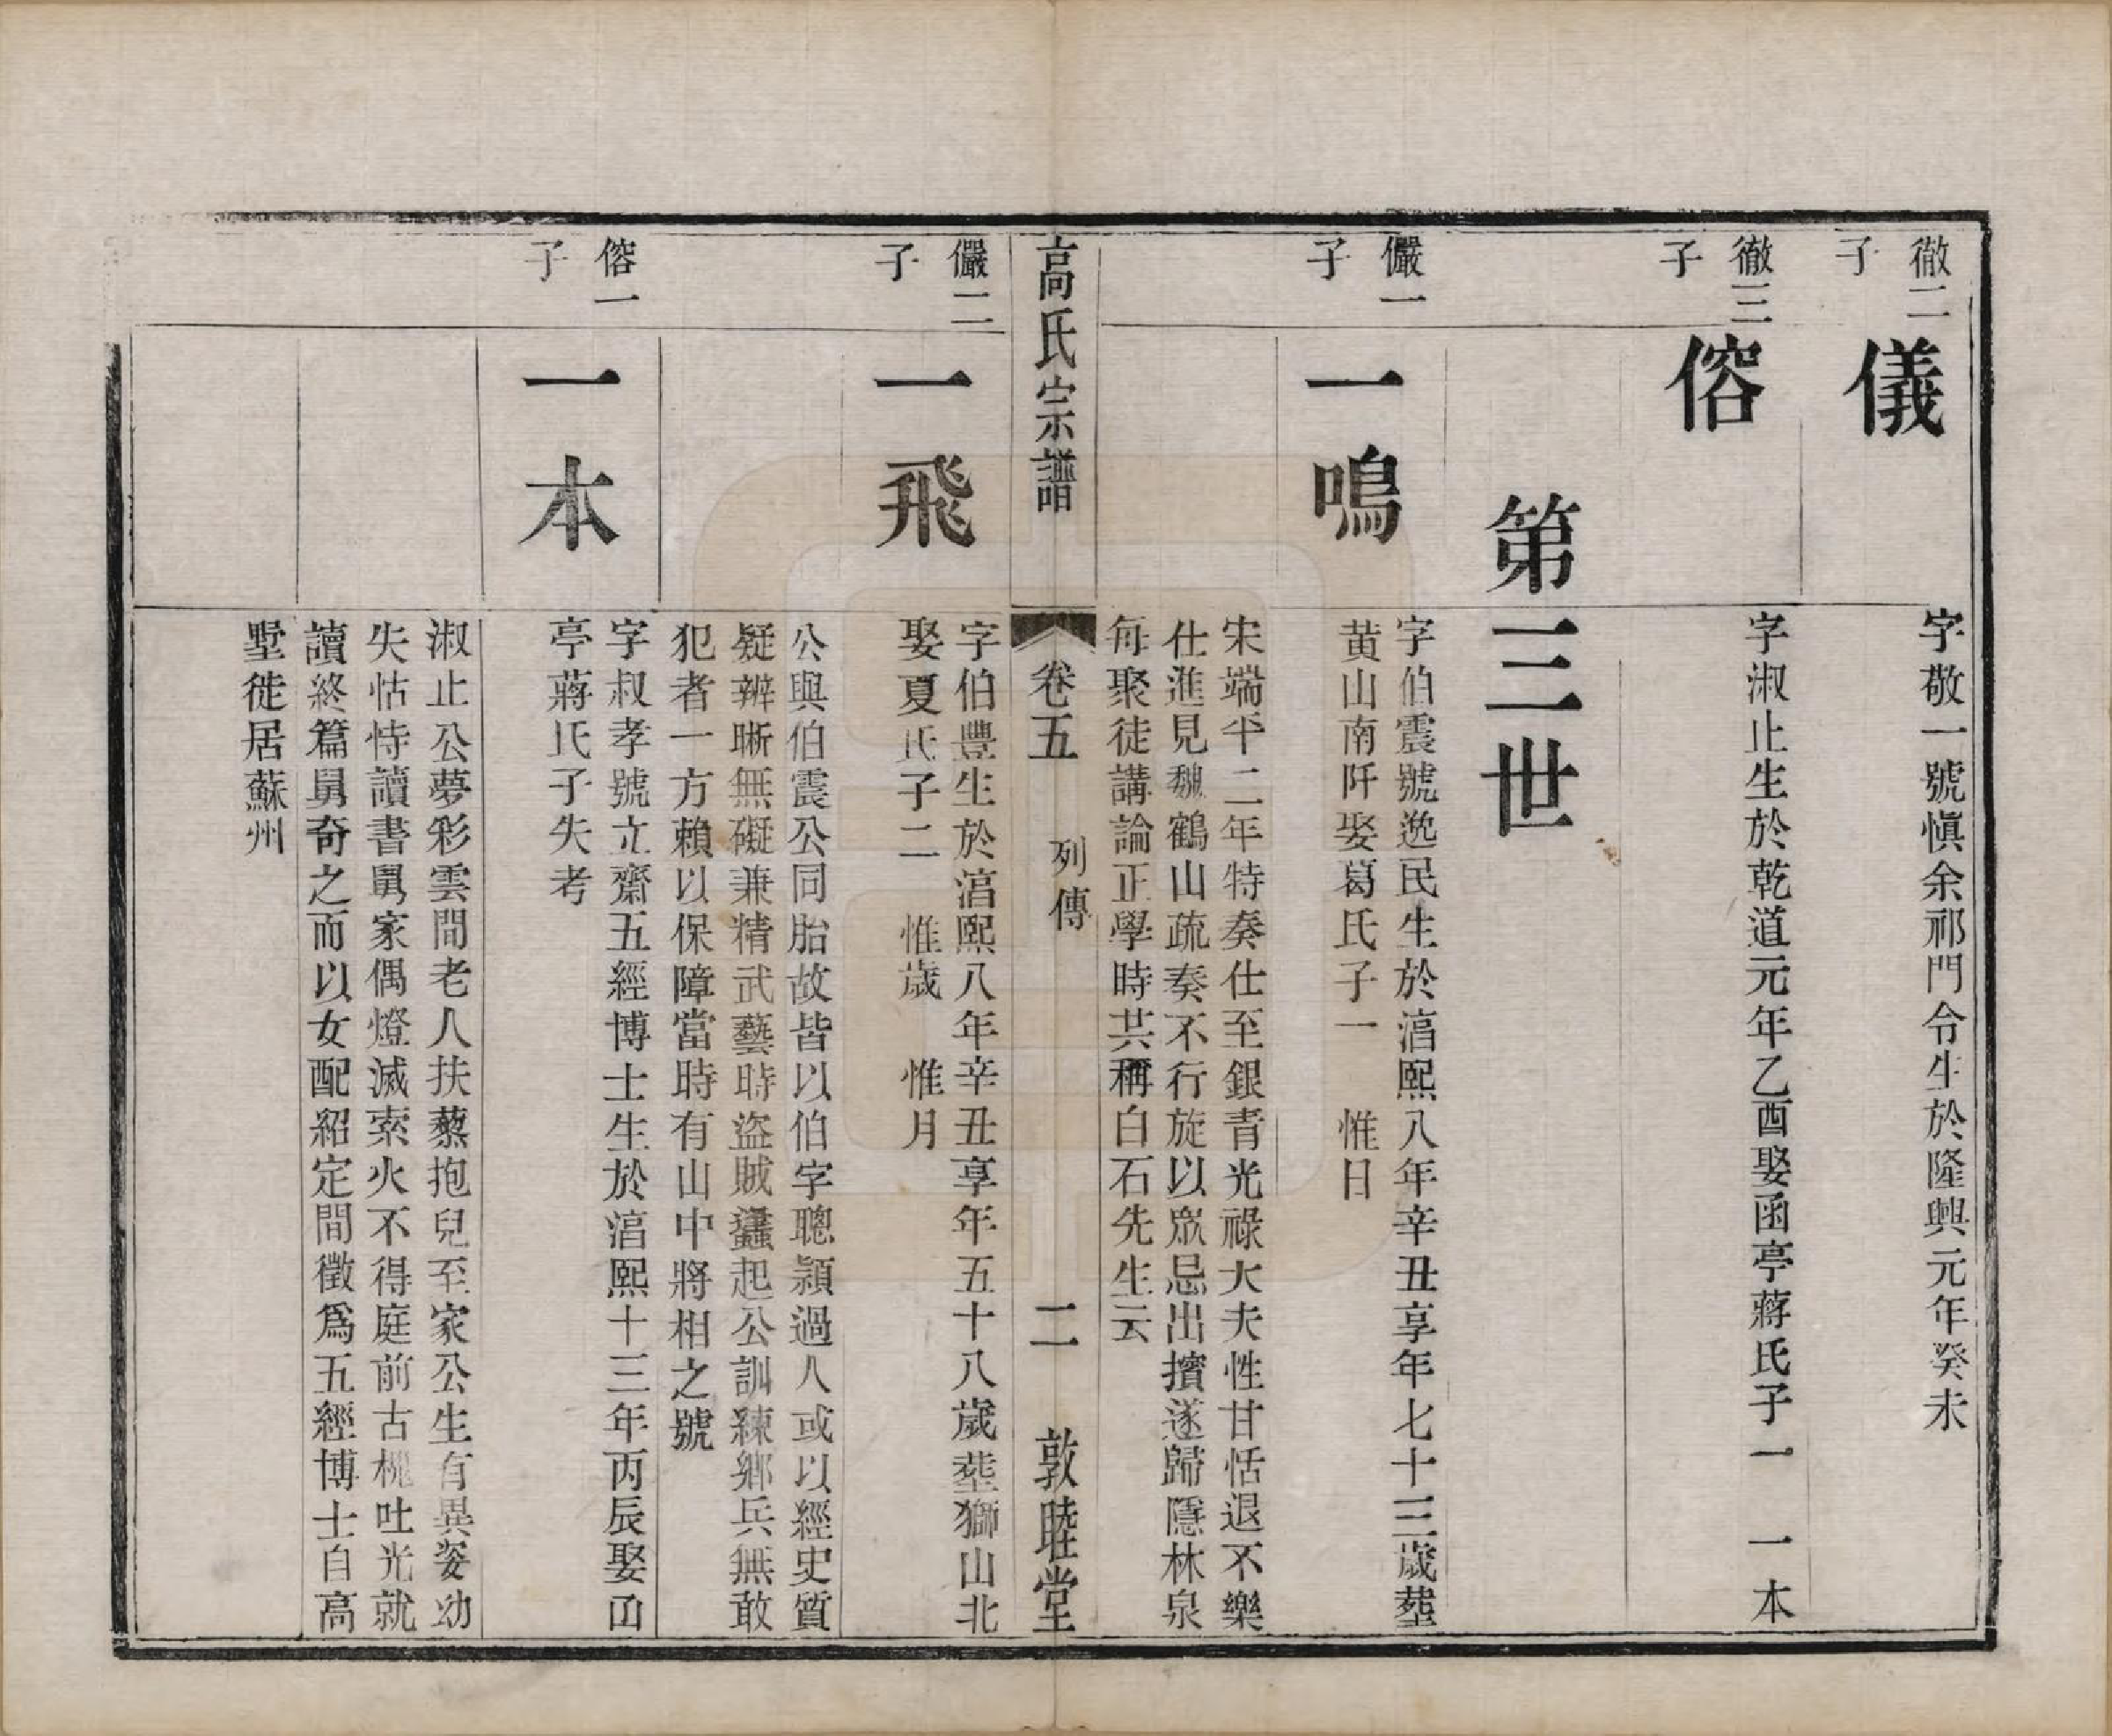 徹二
子
儀
字敬一號愼余祁門令生於隆興元年癸未
徹三
子
傛
字淑止生於乾道元年乙酉娶函亭蔣氏子一　一本
第三世
儼一
子
一鳴
字伯震號逸民生於湻熙八年辛丑享年七十三歲塟
黄山南阡娶葛氏子一　惟日
宋端平二年特奏仕至銀青光祿大夫性甘恬退不樂
仕進見魏鶴山疏奏不行旋以眾忌出擯遂歸隱林泉
每聚徒講論正學時共稱白石先生云
高氏宗譜
卷五
列傳
二
敦睦堂
儼二
子
一飛
字伯豐生於湻熙八年辛丑享年五十八歲塟獅山北
娶夏氏子二　惟歲　惟月
公與伯震公同胎故皆以伯字聰穎過人或以經史質
疑辨晰無礙兼精武藝時盜賊蠭起公訓練鄉兵無敢
犯者一方賴以保障當時有山中將相之號
傛一
子
一本
字叔孝號立齋五經博士生於湻熙十三年丙辰娶凾
亭蔣氏子失考
淑止公夢彩雲間老人扶藜抱兒至家公生有異姿幼
失怙恃讀書舅家偶燈滅索火不得庭前古槐吐光就
讀終篇舅奇之而以女配紹定間徵爲五經博士自高
墅徙居蘇州